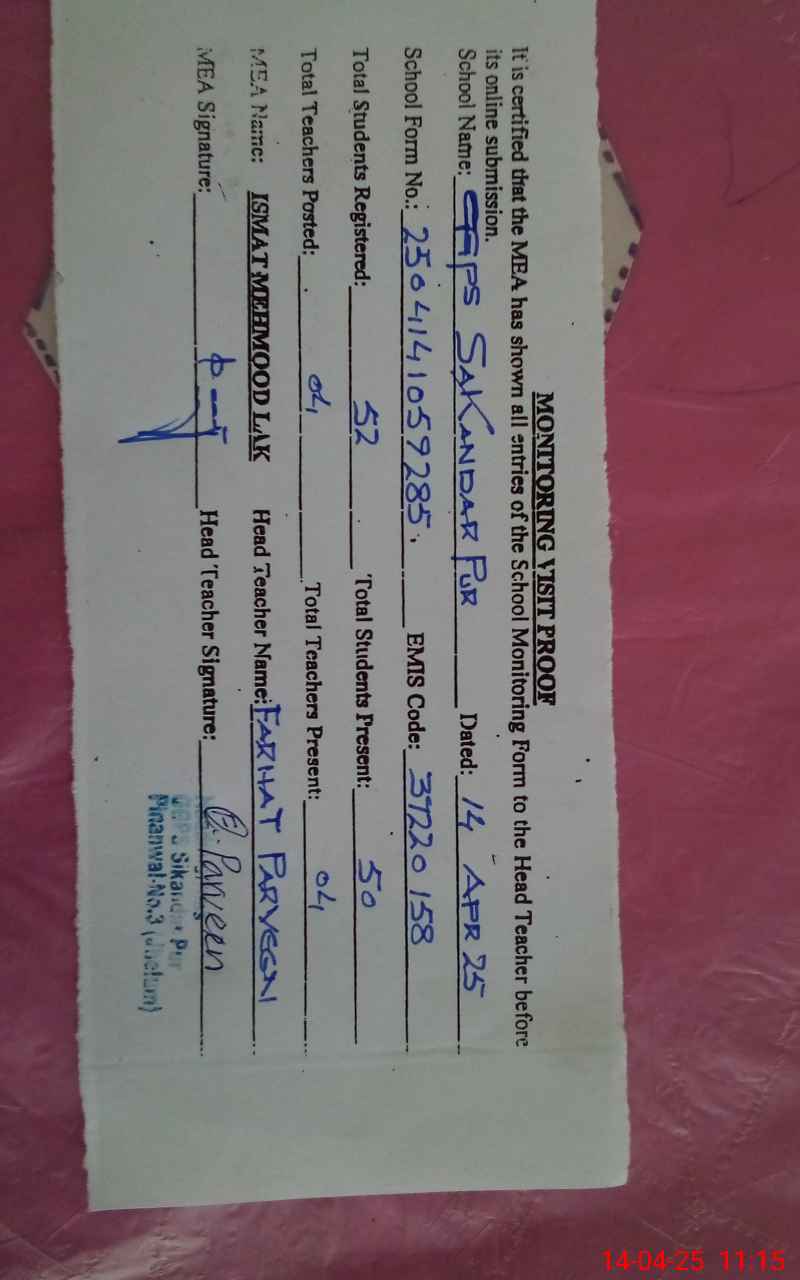 MONITORING VISIT PROOF
It is certified that the MEA has shown all entries of the School Monitoring Form to the Head Teacher before
its online submission.
School Name: GGPS SAKANDAR PUR Dated: 14 APR 25
School Form No.: 2504141059285. EMIS Code: 37220158
Total Students Registered: 52 Total Students Present: 50
Total Teachers Posted: 04 Total Teachers Present: 04
MEA Name: ISMAT MEHMOOD LAK Head Teacher Name: FARHAT PARVEEN
MEA Signature: Head Teacher Signature: Parveen
Sikandar Pur
Pinanwal-No.3 (Jhelum)
14-04-25 11:15